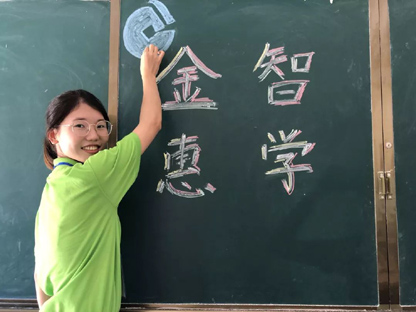 金智
惠学